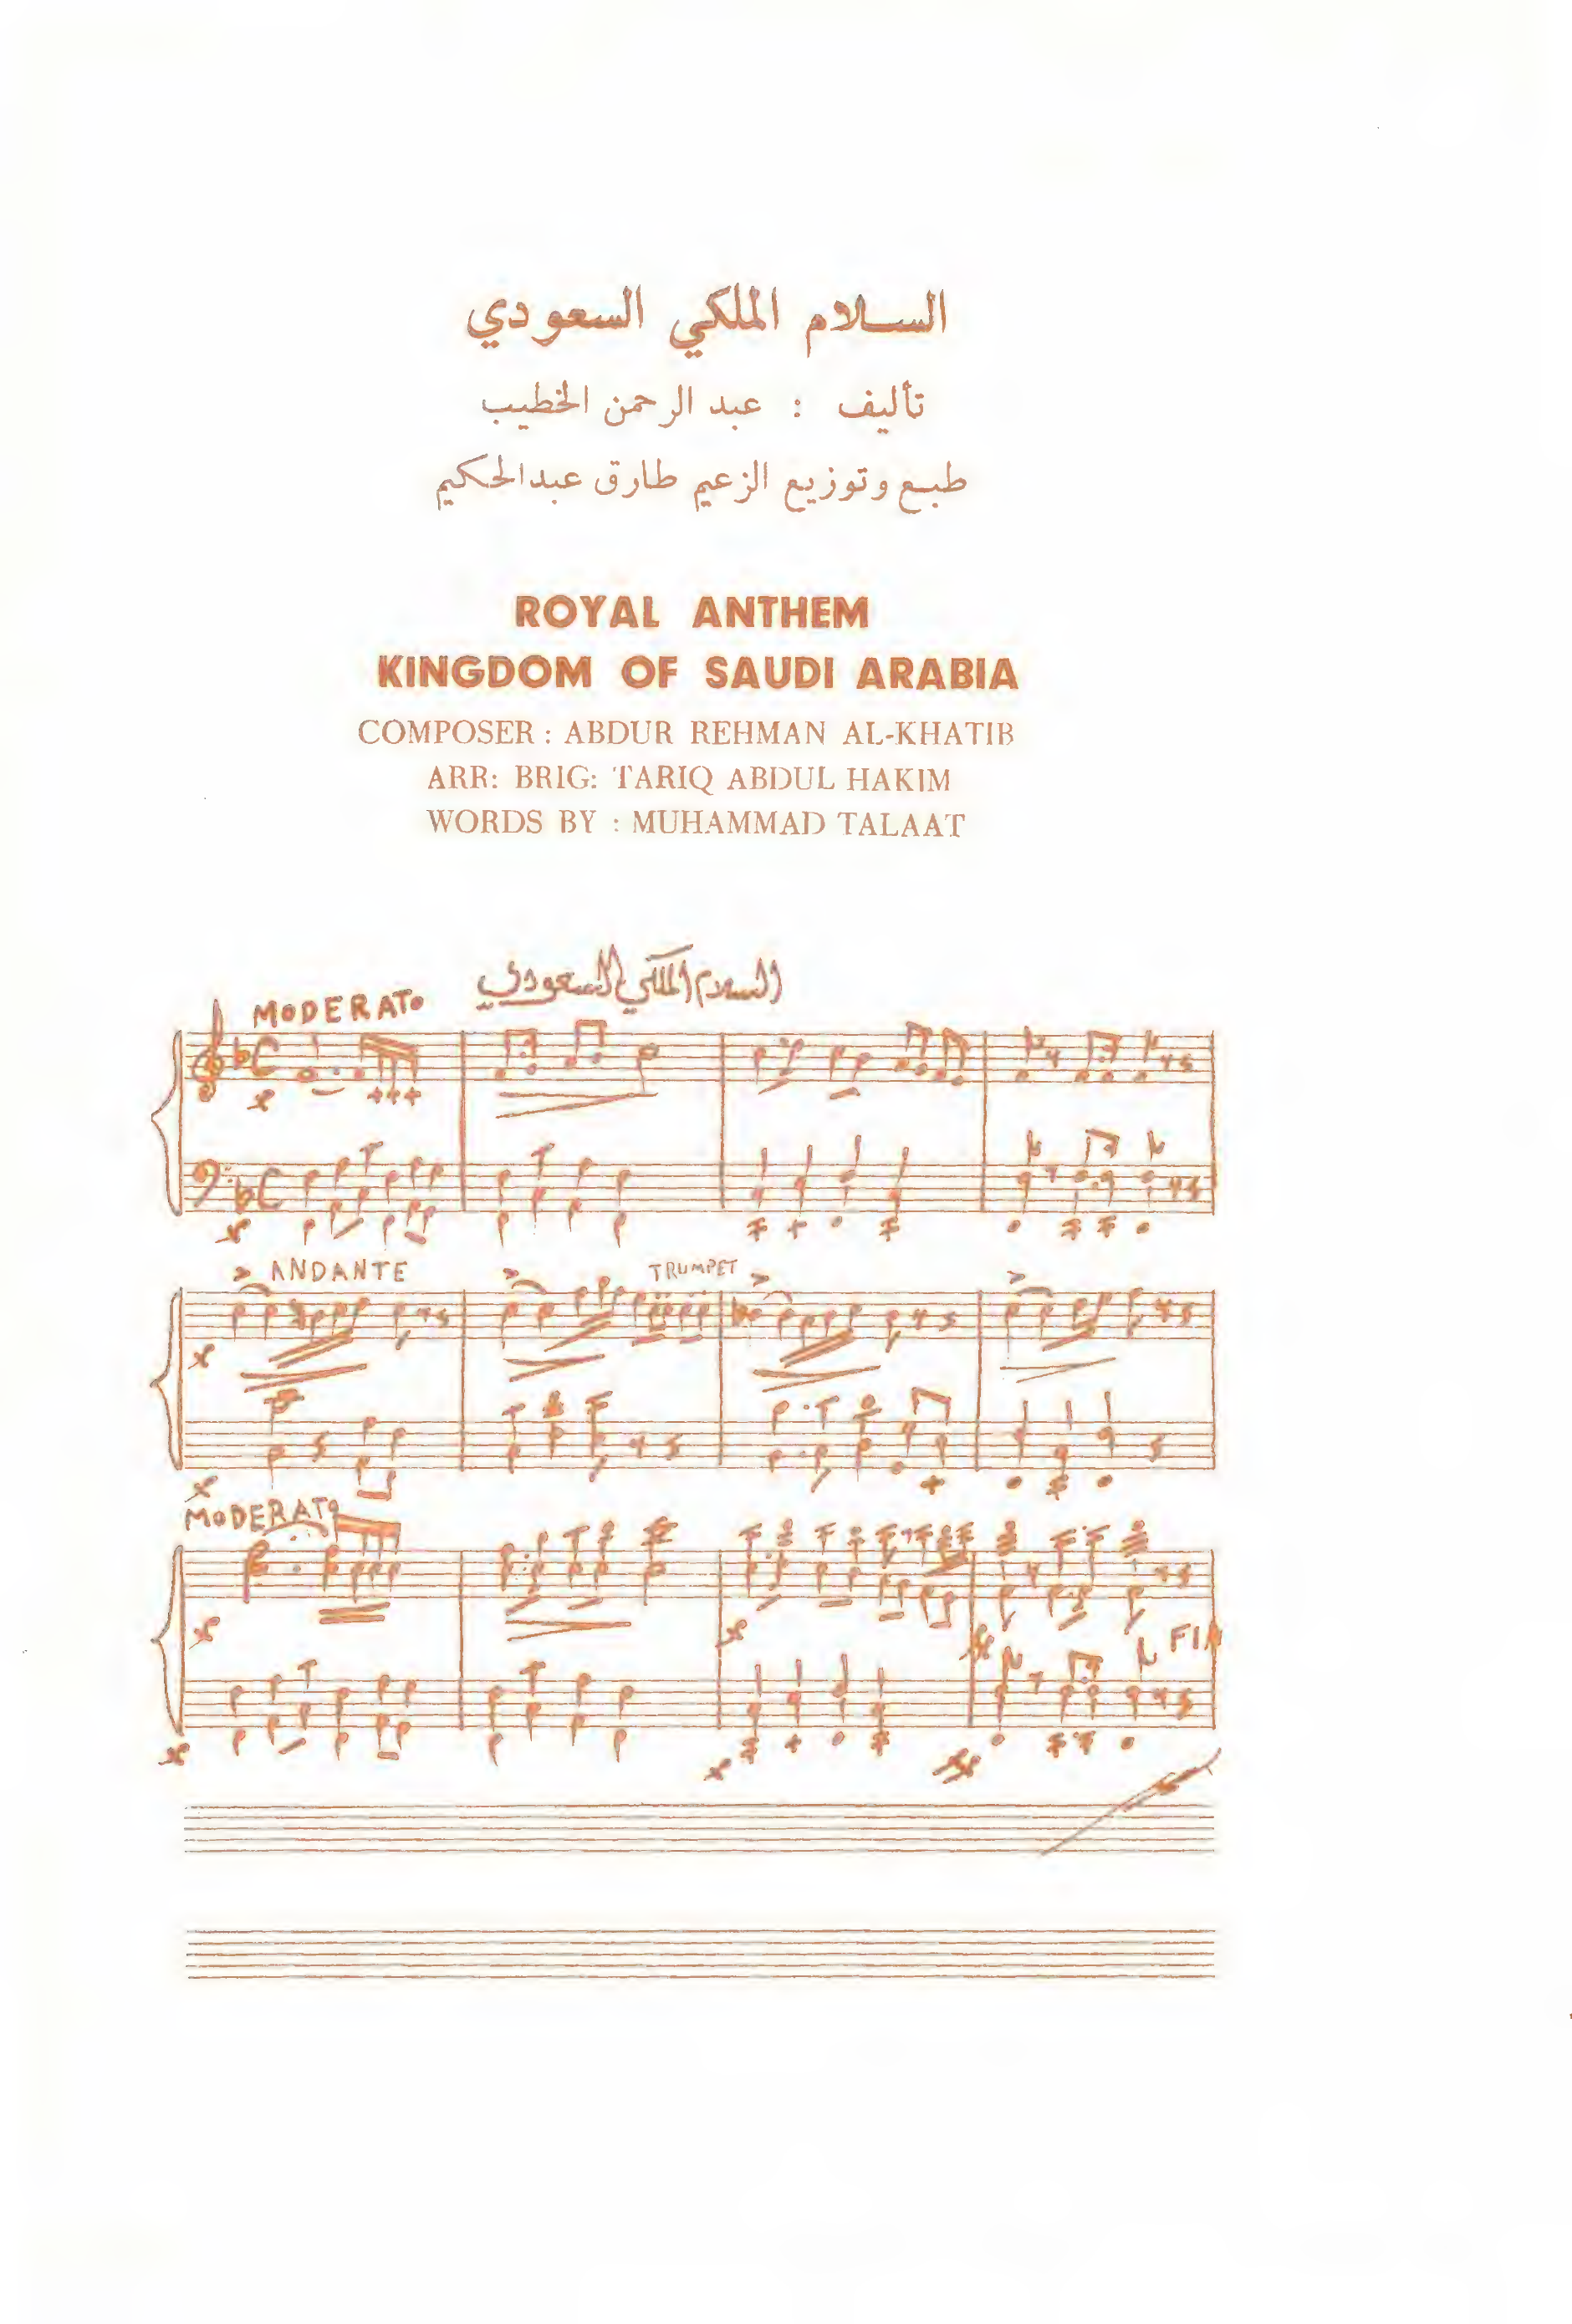 السلام الملكي السعودي
تأليف : عبد الرحمن الخطيب
طبع وتوزيع الزعيم طارق عبدالحكيم
ROYAL ANTHEM
KINGDOM OF SAUDI ARABIA
COMPOSER : ABDUR REHMAN AL-KHATIB
ARR: BRIG: TARIQ ABDUL HAKIM
WORDS BY : MUHAMMAD TALAAT
السلام الملكي السعودي
MODERATO
ANDANTE
TRUMPET
MODERATO